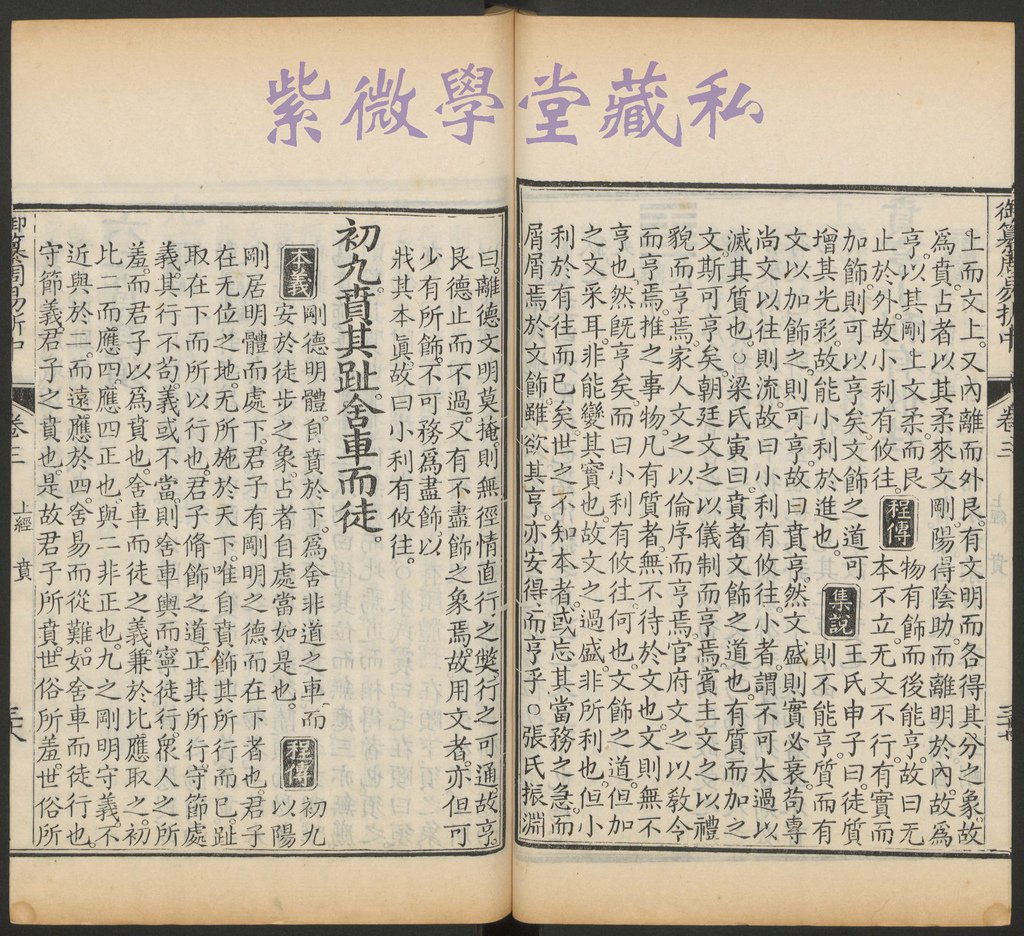 紫微學堂藏私
御纂周易折中 卷三 上經 賁 三七
上而文上。又內離而外艮。有文明而各得其分之象。故
為賁。占者以其柔來文剛。陽得陰助。而離明於內。故為
亨。以其剛上文柔。而艮
止於外。故小利有攸往。
程傳
物有飾而後能亨。故曰无
本不立。无文不行。有實而
加飾。則可以亨矣。文飾之道。可
增其光彩。故能小利於進也。
集說
王氏申子曰。徒質
則不能亨。質而有
文以加飾之。則可亨。故曰賁亨。然文盛則實必衰。苟專
尚文以往則流。故曰小利有攸往。小者。謂不可太過以
滅其質也。○梁氏寅曰。賁者文飾之道也。有質而加之
文。斯可亨矣。朝廷文之以儀制而亨焉。賓主文之以禮
貌而亨焉。家人文之以倫序而亨焉。官府文之以敎令
而亨焉。推之事物。凡有質者。無不待於文也。文則無不
亨也。然旣亨矣。而曰小利有攸往何也。文飾之道。但加
之文采耳。非能變其實也。故文之過盛。非所利也。但小
利於有往而已矣。世之不知本者。或忘其當務之急。而
屑屑焉於文飾。雖欲其亨。亦安得而亨乎。○張氏振淵
曰。離德文明莫掩。則無徑情直行之獘。行之可通。故亨。
艮德止而不過。又有不盡飾之象焉。故用文者。亦但可
少有所飾。不可務為盡飾。以
戕其本眞。故曰小利有攸往。
初九。賁其趾。舍車而徒。
本義
剛德明體。自賁於下。為舍非道之車。而
安於徒步之象。占者自處當如是也。
程傳
初九
以陽
剛居明體而處下。君子有剛明之德而在下者也。君子
在无位之地。无所施於天下。唯自賁飾其所行而已。趾
取在下而所以行也。君子脩飾之道。正其所行。守節處
義。其行不苟。義或不當。則舍車輿而寧徒行。衆人之所
羞。而君子以為賁也。舍車而徒之義。兼於比應取之。初
比二而應四。應四正也。與二非正也。九之剛明守義。不
近與於二。而遠應於四。舍易而從難。如舍車而徒行也。
守節義。君子之賁也。是故君子所賁。世俗所羞。世俗所
御纂周易折中 卷三 上經 賁 三八